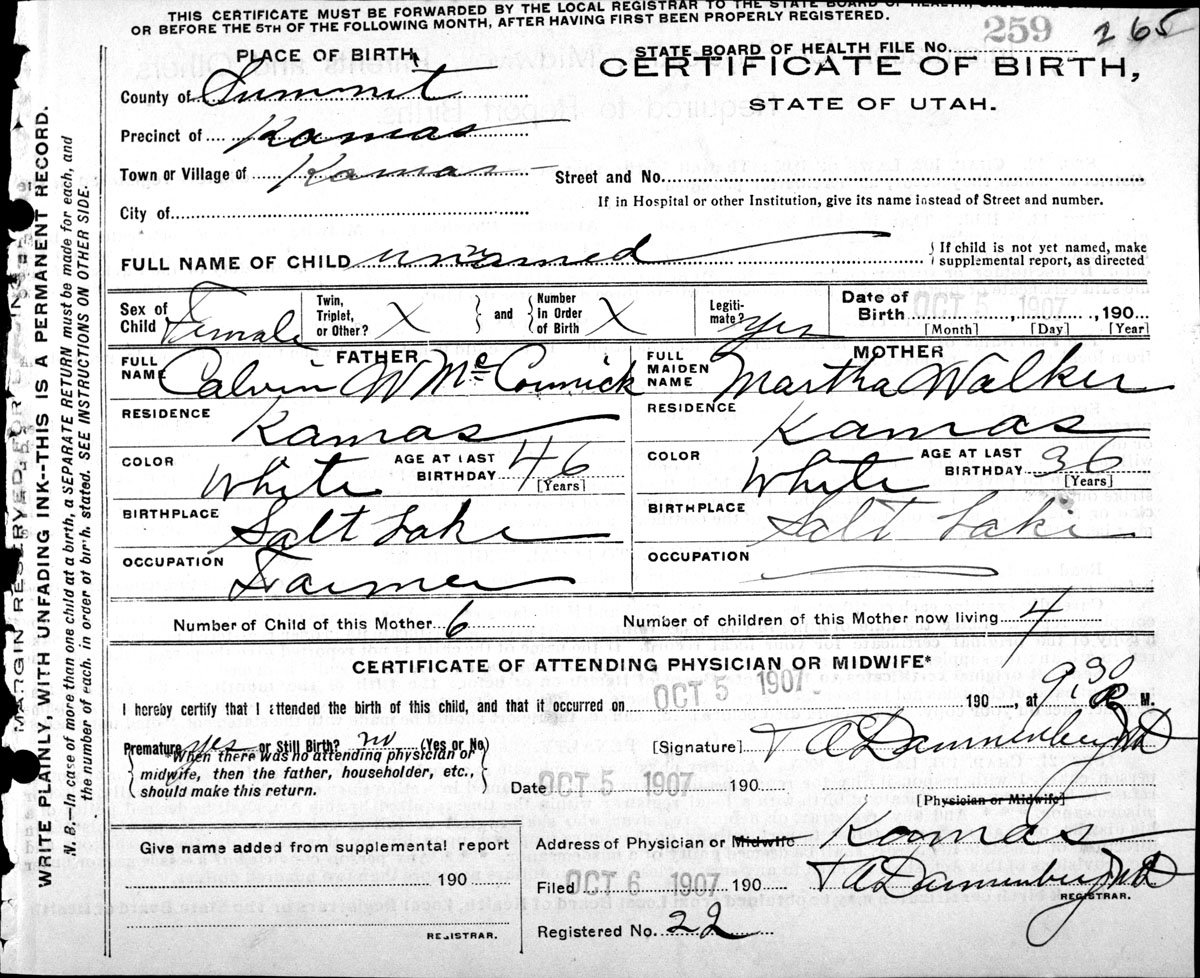 THIS CERTIFICATE MUST BE FORWARDED BY THE LOCAL REGISTRAR TO THE STATE BOARD OF HEALTH,
OR BEFORE THE 5TH OF THE FOLLOWING MONTH, AFTER HAVING FIRST BEEN PROPERLY REGISTERED.
PLACE OF BIRTH
STATE BOARD OF HEALTH FILE No. 259 265
CERTIFICATE OF BIRTH,
STATE OF UTAH.
County of Summit
Precinct of Kamas
Town or Village of Kamas
Street and No.
City of
If in Hospital or other Institution, give its name instead of Street and number.
FULL NAME OF CHILD unnamed
If child is not yet named, make supplemental report, as directed
Sex of Child Female
Twin, Triplet, or Other? X
and
Number in Order of Birth X
Legitimate? Yes
Date of Birth OCT 5 1907, 190
[Month] [Day] [Year]
FATHER
FULL NAME Calvin W McCormick
MOTHER
FULL MAIDEN NAME Martha Walker
RESIDENCE Kamas
RESIDENCE Kamas
COLOR White
AGE AT LAST BIRTHDAY 46
[Years]
COLOR White
AGE AT LAST BIRTHDAY 36
[Years]
BIRTHPLACE Salt Lake
BIRTHPLACE Salt Lake
OCCUPATION Farmer
OCCUPATION
Number of Child of this Mother 6
Number of children of this Mother now living 4
CERTIFICATE OF ATTENDING PHYSICIAN OR MIDWIFE*
I hereby certify that I attended the birth of this child, and that it occurred on OCT 5 1907 190 , at 9,30 P. M.
Premature yes or Still Birth? no (Yes or No)
*When there was no attending physician or
midwife, then the father, householder, etc.,
should make this return.
[Signature] T A Dannenberg MD
Date OCT 5 1907 190
[Physician or Midwife]
Give name added from supplemental report
190
REGISTRAR.
Address of Physician or Midwife Kamas
Filed OCT 6 1907 190 T A Dannenberg MD
REGISTRAR.
Registered No. 22
MARGIN RESERVED FOR BINDING
WRITE PLAINLY, WITH UNFADING INK--THIS IS A PERMANENT RECORD.
N. B.—In case of more than one child at a birth, a SEPARATE RETURN must be made for each, and
the number of each, in order of birth, stated. SEE INSTRUCTIONS ON OTHER SIDE.